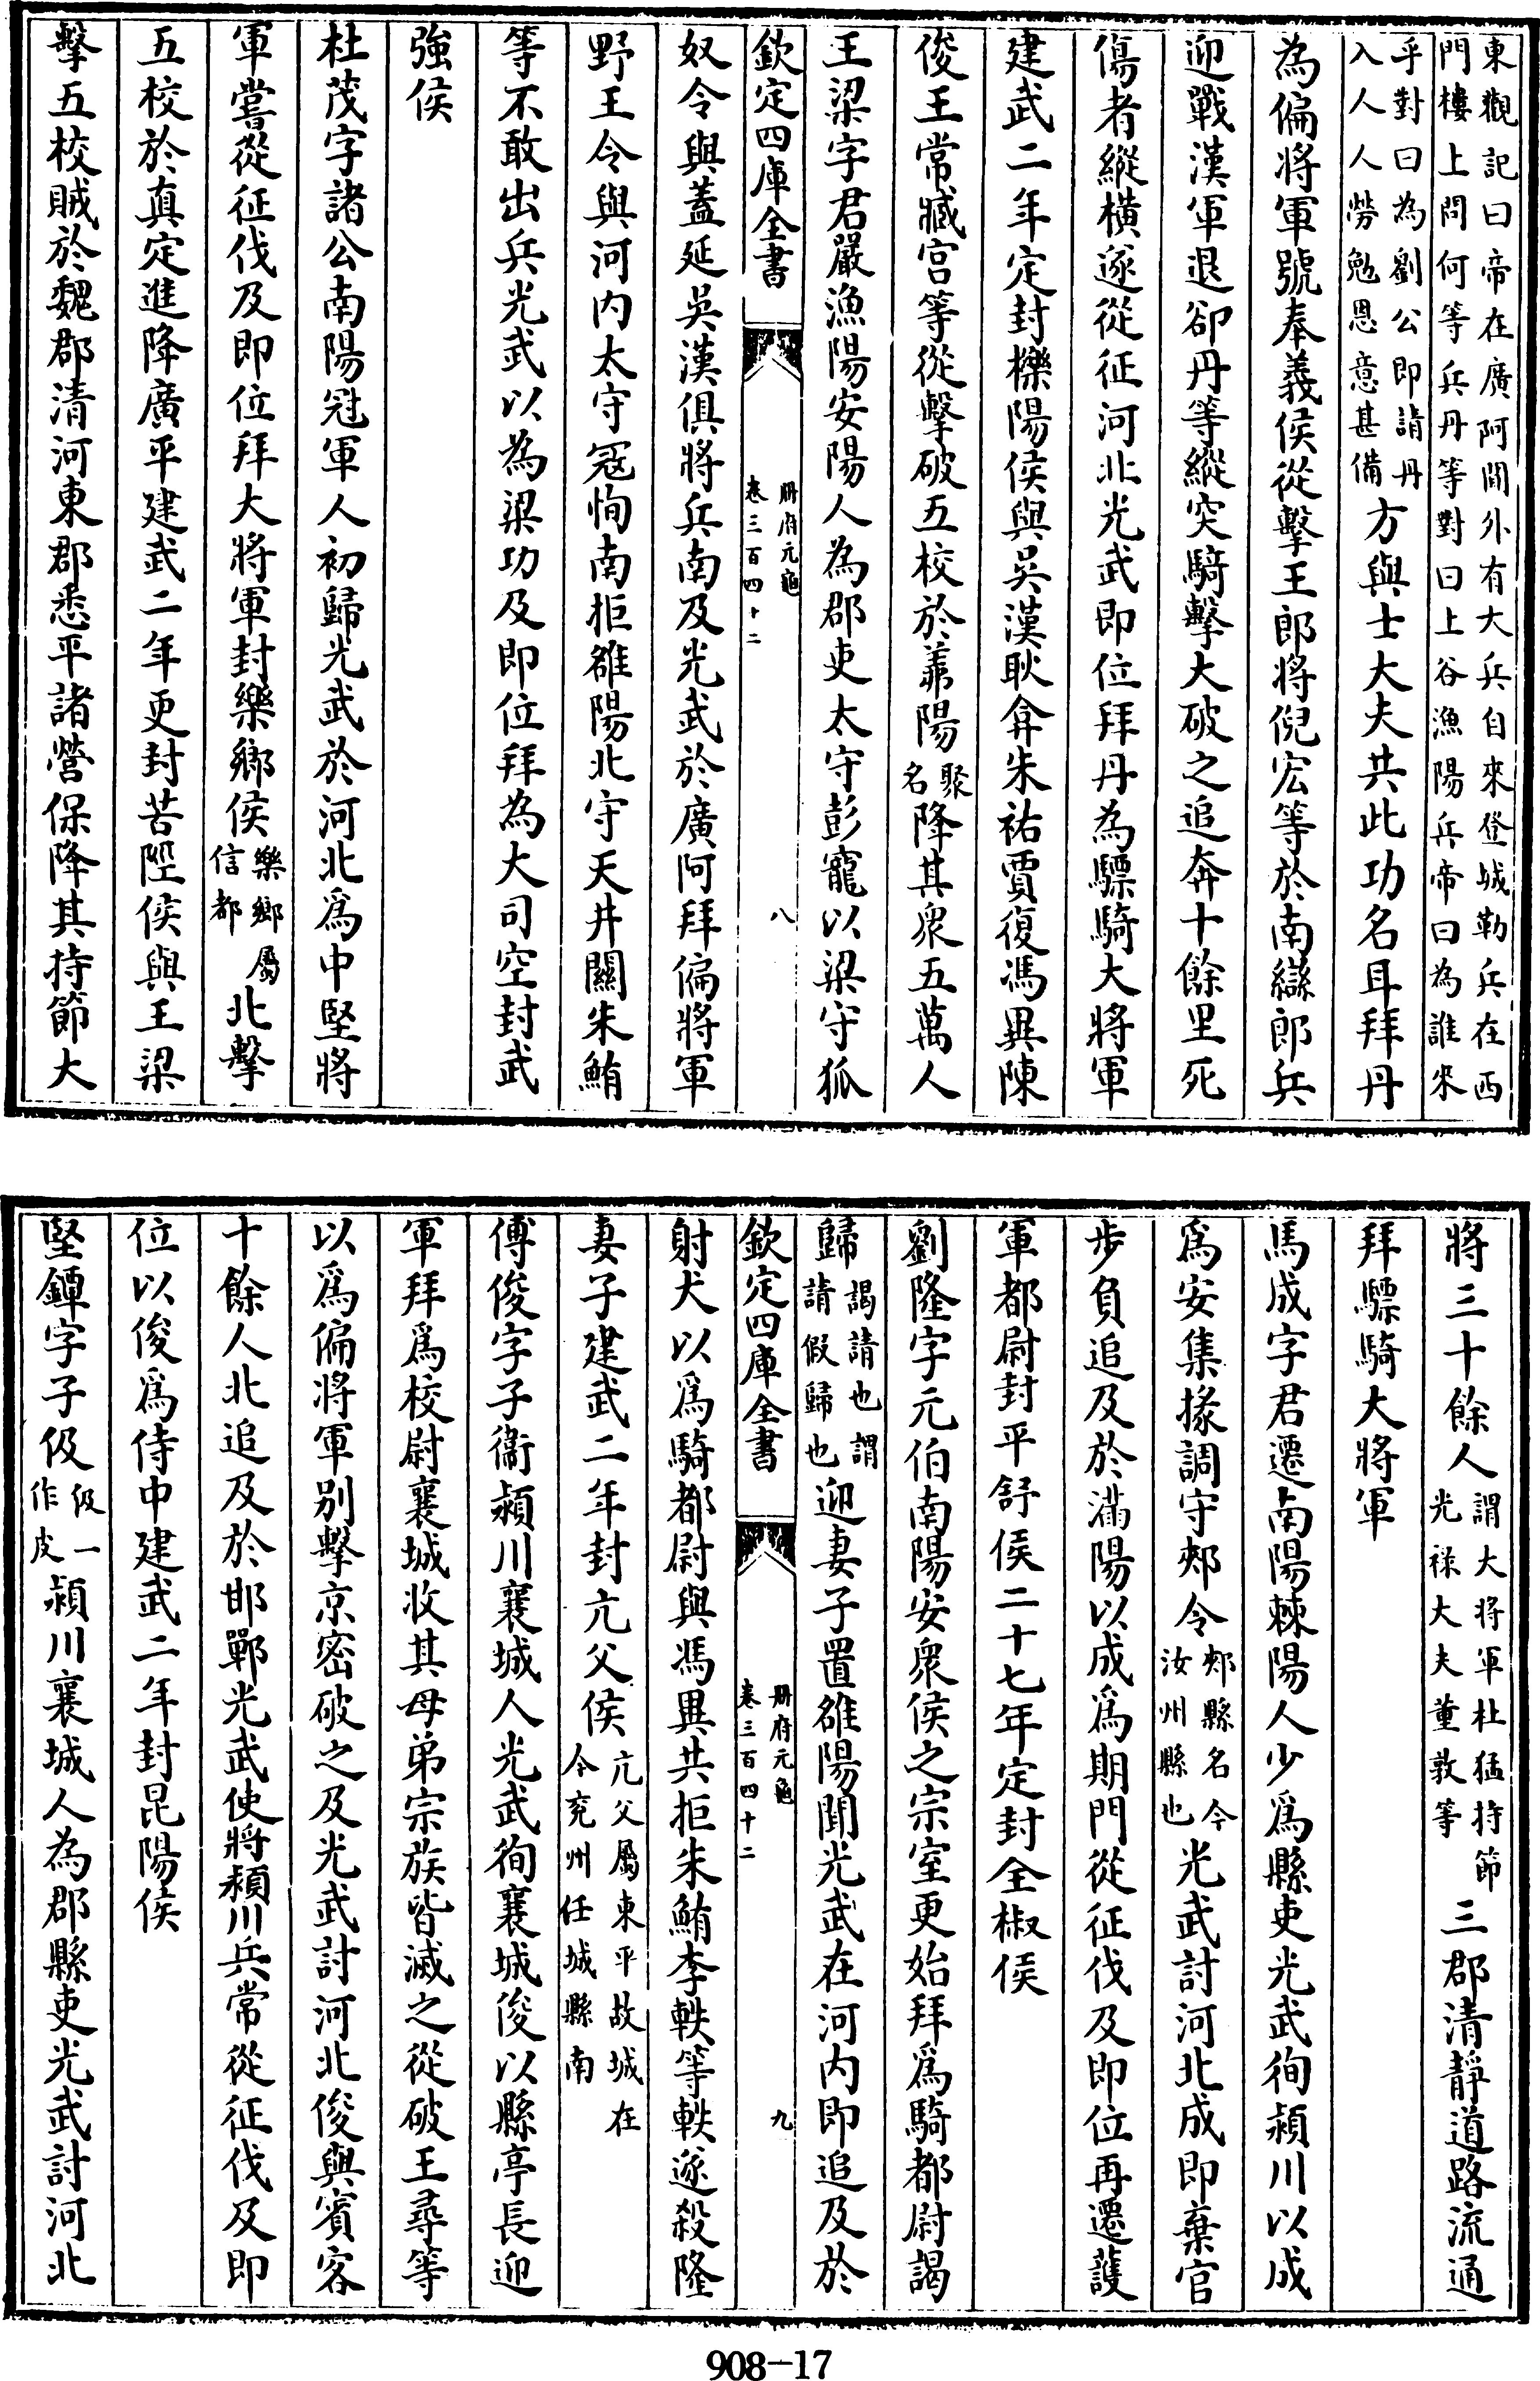 東觀記曰帝在廣阿聞外有大兵自來登城勒兵在西
門樓上問何等兵丹等對曰上谷漁陽兵帝曰為誰來
乎對曰為劉公即請丹
入人人勞勉恩意甚備
方與士大夫共此功名耳拜丹
為偏將軍號奉義侯從擊王郎將倪宏等於南䜌郎兵
迎戰漢軍退卻丹等縱突騎擊大破之追奔十餘里死
傷者縱橫遂從征河北光武即位拜丹為驃騎大將軍
建武二年定封櫟陽侯與吳漢耿弇朱祐賈復馮異陳
俊王常臧宮等從擊破五校於羛陽
聚
名
降其衆五萬人
王梁字君嚴漁陽安陽人為郡吏太守彭寵以梁守狐
欽定四庫全書
冊府元龜
卷三百四十二
八
奴令與蓋延吳漢俱將兵南及光武於廣阿拜偏將軍
野王令與河內太守冦恂南拒雒陽北守天井關朱鮪
等不敢出兵光武以為梁功及即位拜為大司空封武
強侯
杜茂字諸公南陽冠軍人初歸光武於河北爲中堅將
軍嘗從征伐及即位拜大將軍封樂鄉侯
樂鄉屬
信都
北擊
五校於真定進降廣平建武二年更封苦陘侯與王梁
擊五校賊於魏郡清河東郡悉平諸營保降其持節大
將三十餘人
謂大將軍杜猛持節
光祿大夫董敦等
三郡清靜道路流通
拜驃騎大將軍
馬成字君遷南陽棘陽人少爲縣吏光武徇潁川以成
爲安集掾調守郟令
郟縣名今
汝州縣也
光武討河北成即棄官
步負追及於滿陽以成爲期門從征伐及即位再遷護
軍都尉封平舒侯二十七年定封全椒侯
劉隆字元伯南陽安衆侯之宗室更始拜爲騎都尉謁
歸
謁請也謂
請假歸也
迎妻子置雒陽聞光武在河內即追及於
欽定四庫全書
冊府元龜
卷三百四十二
九
射犬以爲騎都尉與馮異共拒朱鮪李軼等軼遂殺隆
妻子建武二年封亢父侯
亢父屬東平故城在
今兖州任城縣南
傅俊字子衞潁川襄城人光武徇襄城俊以縣亭長迎
軍拜爲校尉襄城收其母弟宗族皆滅之從破王尋等
以爲偏將軍別擊京密破之及光武討河北俊與賓客
十餘人北追及於邯鄲光武使將潁川兵常從征伐及即
位以俊爲侍中建武二年封昆陽侯
堅鐔字子伋
伋一
作皮
潁川襄城人為郡縣吏光武討河北
908-17